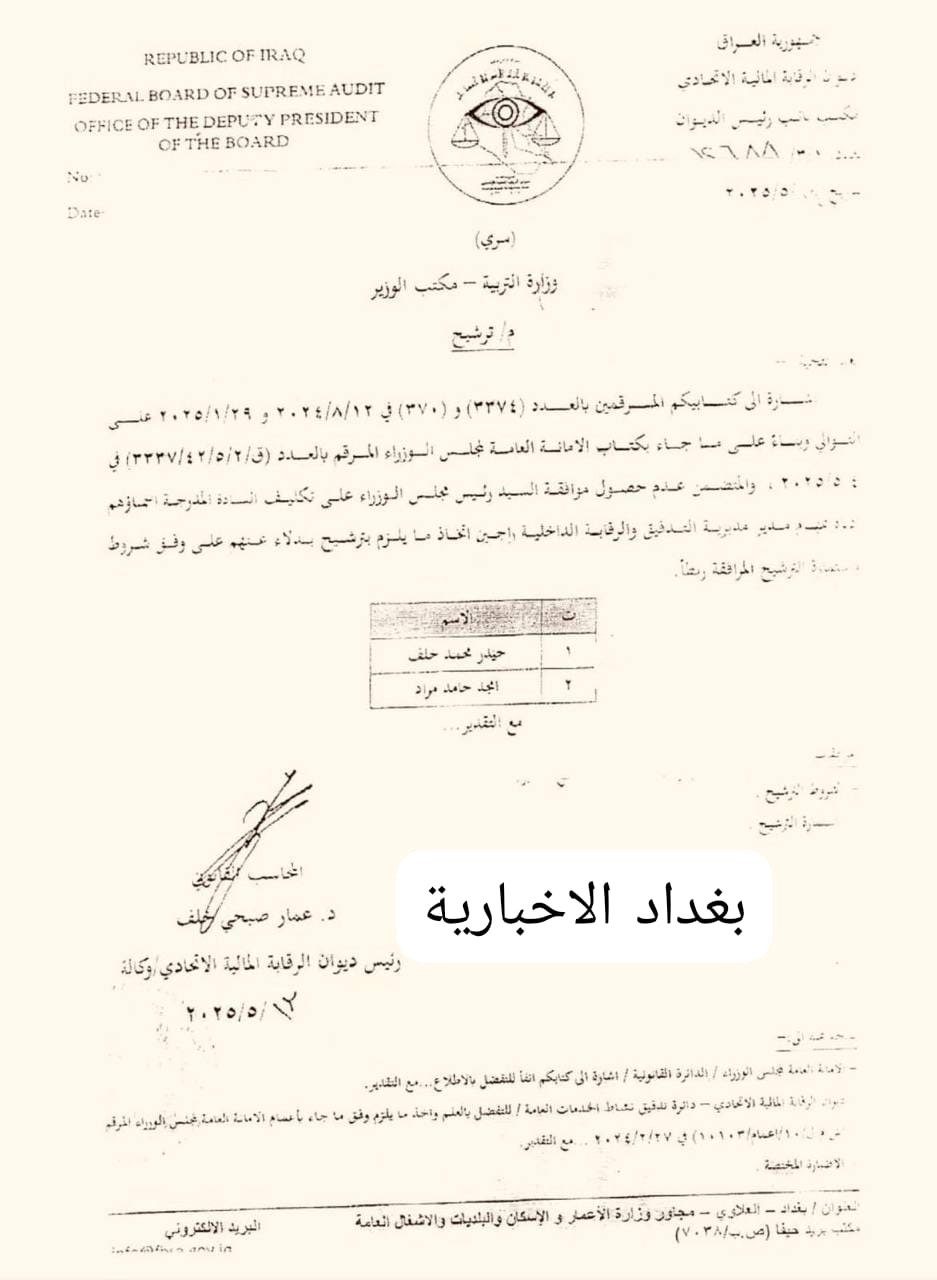 REPUBLIC OF IRAQ
FEDERAL BOARD OF SUPREME AUDIT
OFFICE OF THE DEPUTY PRESIDENT
OF THE BOARD
No:
Date:
جمهورية العراق
ديوان الرقابة المالية الاتحادي
مكتب نائب رئيس الديوان
٢٠٢٥/٥/
(سري)
وزارة التربية – مكتب الوزير
م/ ترشيح
التحية –
اشارة الى كتابيكم المرقمين بالعدد (٣٣٧٤) و (٣٧٠) في ٢٠٢٤/٨/١٢ و ٢٠٢٥/١/٢٩ على
التوالي وبناءً على ما جاء بكتاب الامانة العامة لمجلس الوزراء المرقم بالعدد (ق/٣٣٣٧/٤٢/٥/٢) في
٢٠٢٥/٥/٤ ، والمتضمن عدم حصول موافقة السيد رئيس مجلس الوزراء على تكليف السادة المدرجة اسماؤهم
مدير مديرية التدقيق والرقابة الداخلية راجين اتخاذ ما يلزم بترشيح بدلاء عنهم على وفق شروط
الترشيح المرافقة ربطاً.
ت الاسم
١ حيدر محمد خلف
٢ امجد حامد مراد
مع التقدير...
شروط الترشيح .
الترشيح .
المحاسب القانوني
د. عمار صبحي خلف
رئيس ديوان الرقابة المالية الاتحادي/وكالة
٢٠٢٥/٥/١٣
بغداد الاخبارية
– الامانة العامة لمجلس الوزراء / الدائرة القانونية / اشارة الى كتابكم انفاً للتفضل بالاطلاع...مع التقدير.
ديوان الرقابة المالية الاتحادي – دائرة تدقيق نشاط الخدمات العامة / للتفضل بالعلم واخذ ما يلزم وفق ما جاء بأعمام الامانة العامة لمجلس الوزراء المرقم
١٠/اعمام/١٠١٠٣) في ٢٠٢٤/٢/٢٧ ...مع التقدير.
– الاضبارة المختصة .
العنوان / بغداد – العلاوي – مجاور وزارة الأعمار و الإسكان والبلديات والاشغال العامة
مكتب بريد حيفا (ص.ب/٧٠٣٨)
البريد الالكتروني